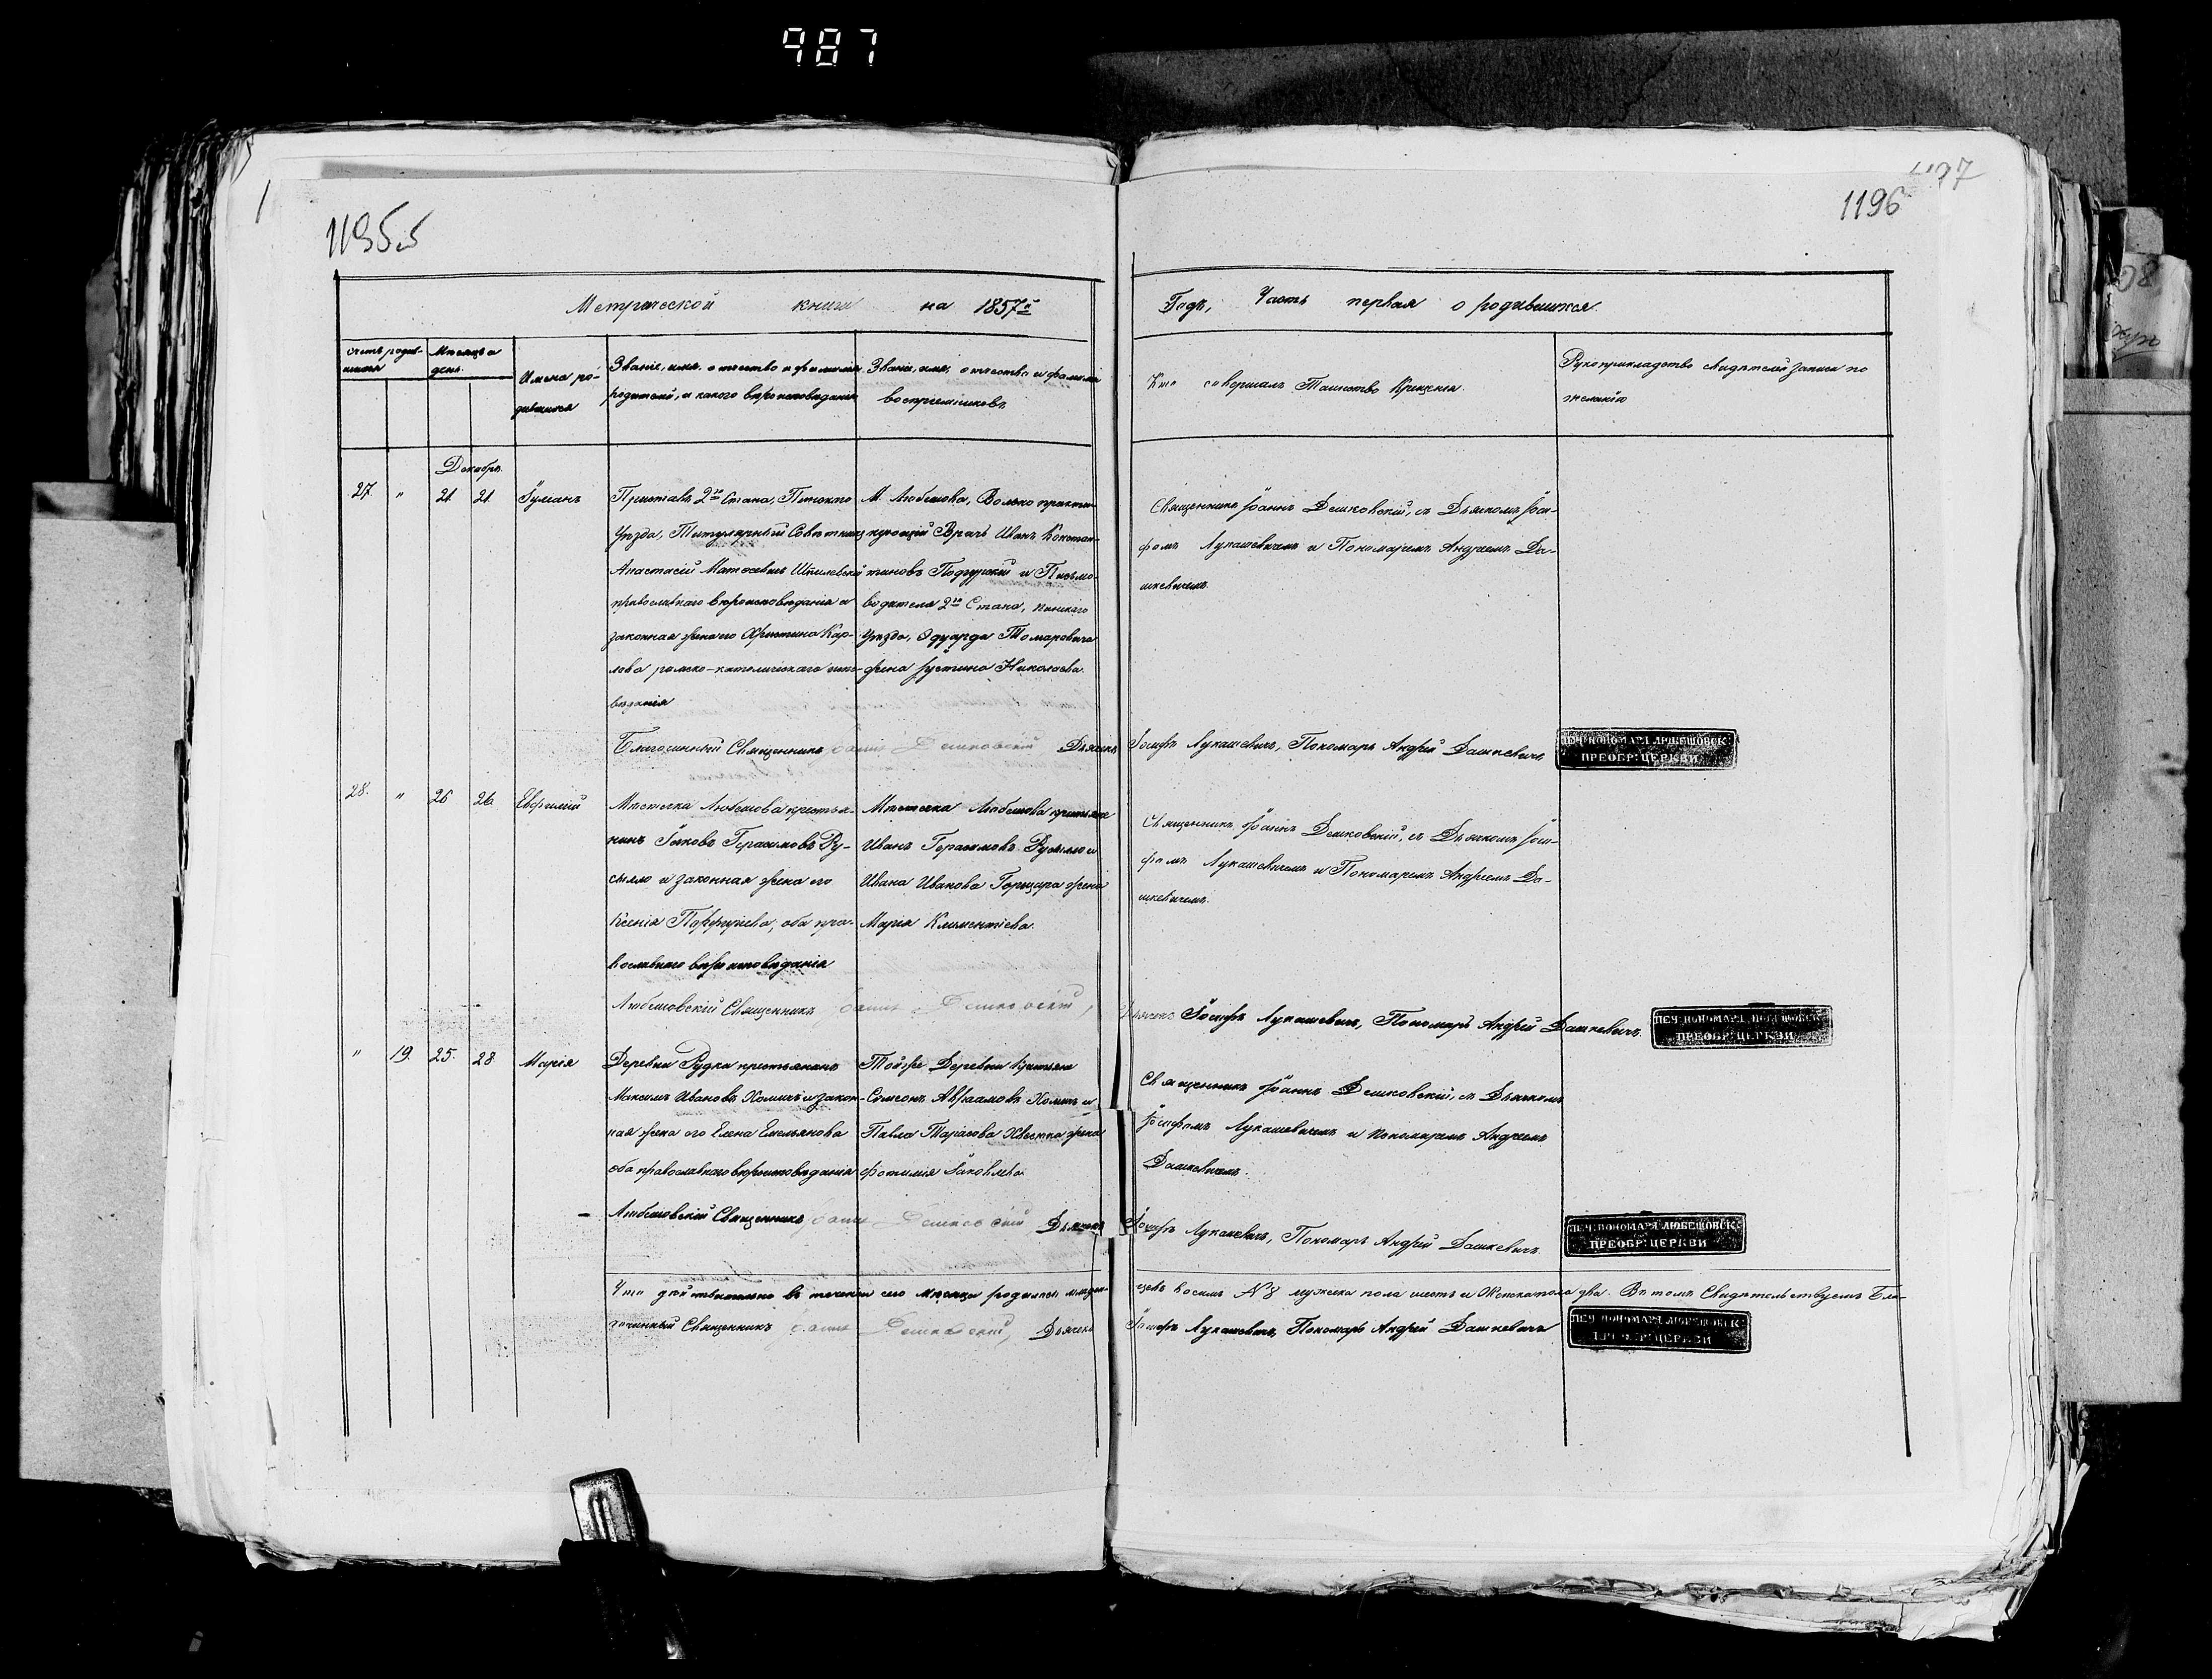 987
11955
1196
Метрической книги на 1857й
Годъ, Часть первая о родившихся.
Счетъ родив-
шихся
Мѣсяцъ и
день.
Имена ро-
дившихся
Званіе, имя, отчество и фамилія
родителей, и какого вѣроисповѣданія
Званіе, имя, отчество и фамилія
воспріемниковъ
Кто совершалъ Таинство Крещенія.
Рукоприкладство свидѣтелей записи по
желанію
Декабрь.
27. " 21 21
Приставъ 2го Стана, Пинскаго
Уѣзда, Титулярный Совѣтникъ
Анастасій Матѳеевичъ Шпилевскій
православнаго вѣроисповѣданія и
законная жена его Христина Кар-
лова римско-католическаго испо-
вѣданія
М. Любешова, Вольно практи-
кующій Врачъ Иванъ Констан-
тиновъ и Письмо-
водителя 2го Стана, Пинскаго
Уѣзда, Эдуарда Томаровича
жена Іустина Николаева.
Священникъ Іоаннъ Демковскій, съ Дьячкомъ Іоси-
фомъ Лукашевичемъ и Пономаремъ Андреемъ Да-
шкевичемъ.
Благочинный Священникъ Іоаннъ Демковскій Дьячекъ Іосифъ Лукашевичъ, Пономарь Андрей Дашкевичъ
ПЕЧ: ПОНОМАРЯ ЛЮБЕШОВСК:
ПРЕОБР: ЦЕРКВИ
28. " 26 26 Евфимій
Мѣстечка Любешова крестья-
нинъ Іаковъ Герасимовъ Ру-
сыло и законная жена его
Ксенія Порфиріева, оба пра-
вославнаго вѣроисповѣданія
Мѣстечка Любешова крестьяне
Иванъ Герасимовъ Русыло и
Ивана Иванова Гарщара жена
Марія Климентіева.
Священникъ Іоаннъ Демковскій, съ Дьячкомъ Іоси-
фомъ Лукашевичемъ и Пономаремъ Андреемъ Да-
шкевичемъ.
Любешовскій Священникъ Іоаннъ Демковскій, Дьячекъ Іосифъ Лукашевичъ, Пономарь Андрей Дашкевичъ.
ПЕЧ: ПОНОМАРЯ ЛЮБЕШОВСК:
ПРЕОБР: ЦЕРКВИ
" 19. 25. 28 Марія
Деревни Рудки крестьянинъ
Максимъ Ивановъ Хомичъ и закон-
ная жена его Елена Емельянова
оба православнаго вѣроисповѣданія
Тойже Деревни Крестьяне
Самсонъ Авраамовъ Хомичъ и
Павла Тарасова жена
Фотинія Іаковлева.
Священникъ Іоаннъ Демковскій, съ Дьячкомъ
Іосифомъ Лукашевичемъ и Пономаремъ Андреемъ
Дашкевичемъ.
Любешовскій Священникъ Іоаннъ Демковскій Дьячекъ Іосифъ Лукашевичъ, Пономарь Андрей Дашкевичъ.
ПЕЧ: ПОНОМАРЯ ЛЮБЕШОВСК:
ПРЕОБР: ЦЕРКВИ
Что дѣйствительно въ теченіи сего мѣсяца родилось младен-
цевъ восемь №8 мужеска пола шесть и Женска пола два. Въ томъ Свидѣтельствуемъ Бла-
гочинный Священникъ Іоаннъ Демковскій, Дьячекъ Іосифъ Лукашевичъ, Пономарь Андрей Дашкевичъ
ПЕЧ: ПОНОМАРЯ ЛЮБЕШОВСК:
ПРЕОБР: ЦЕРКВИ